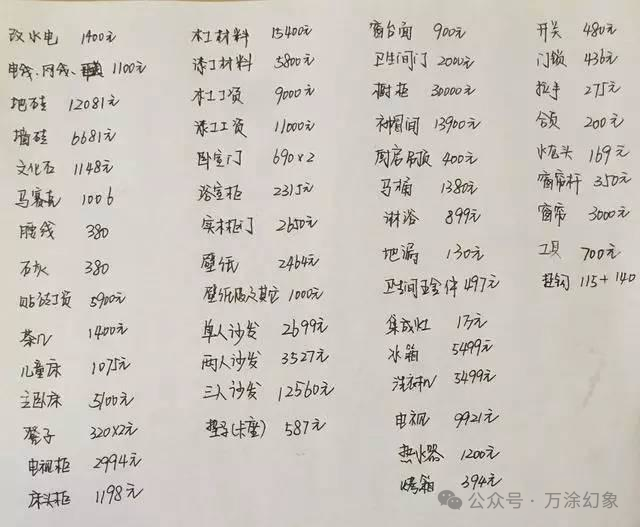 改水电 1400元
电线、网线、 1100元
地砖 12081元
墙砖 6681元
文化石 1148元
马赛克 1006
腰线 380
石灰 380
贴砖工资 5900元
茶几 1400元
儿童床 1075元
主卧床 5100元
凳子 320x2元
电视柜 2994元
床头柜 1198元
木工材料 15400元
漆工材料 5800元
木工工资 9000元
漆工工资 11000元
卧室门 690×2
浴室柜 2315元
实木柜门 2650元
壁纸 2464元
壁纸粘及其它 1000元
单人沙发 2699元
两人沙发 3527元
三人沙发 12560元
垫子(卡座) 587元
窗台面 900元
卫生间门 2000元
橱柜 30000元
衣帽间 13900元
厨房吊顶 400元
马桶 1380元
淋浴 899元
地漏 130元
卫生间五金件 497元
集成灶 1万元
冰箱 5499元
洗衣机 5499元
电视 9921元
热水器 1200元
烤箱 394元
开关 480元
门锁 436元
拉手 275元
合页 200元
水龙头 169元
窗帘杆 350元
窗帘 3000元
工具 700元
挂钩 115+140
公众号·万涂幻象